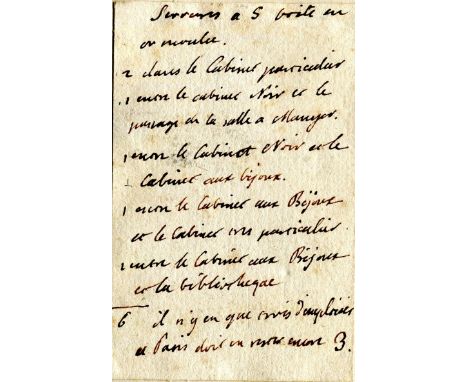 Serrures a S boite en
or moulu.
2 dans le Cabinet particulier
1 entre le cabinet Noir et le
passage de la salle a Manger.
1 entre le Cabinet Noir et le
Cabinet aux bijoux.
1 entre le Cabinet aux Bijoux
et le Cabinet tres particulier.
1 entre le Cabinet aux Bijoux
et la bibliotheque
6 il n'y en que trois d'employées
et Paris doit en avoir encore 3.